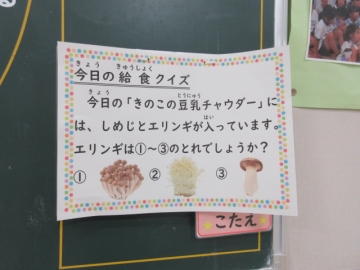 今日の給食クイズ
今日の「きのこの豆乳チャウダー」に
は、しめじとエリンギが入っています。
エリンギは①～③のどれでしょうか？
① ② ③
こたえ